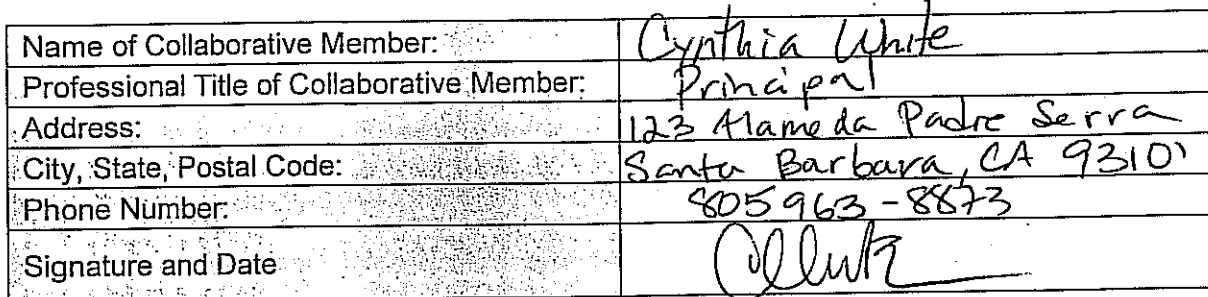 Name of Collaborative Member: Cynthia White
Professional Title of Collaborative Member: Principal
Address: 123 Alameda Padre Serra
City, State, Postal Code: Santa Barbara, CA 93101
Phone Number: 805 963-8873
Signature and Date